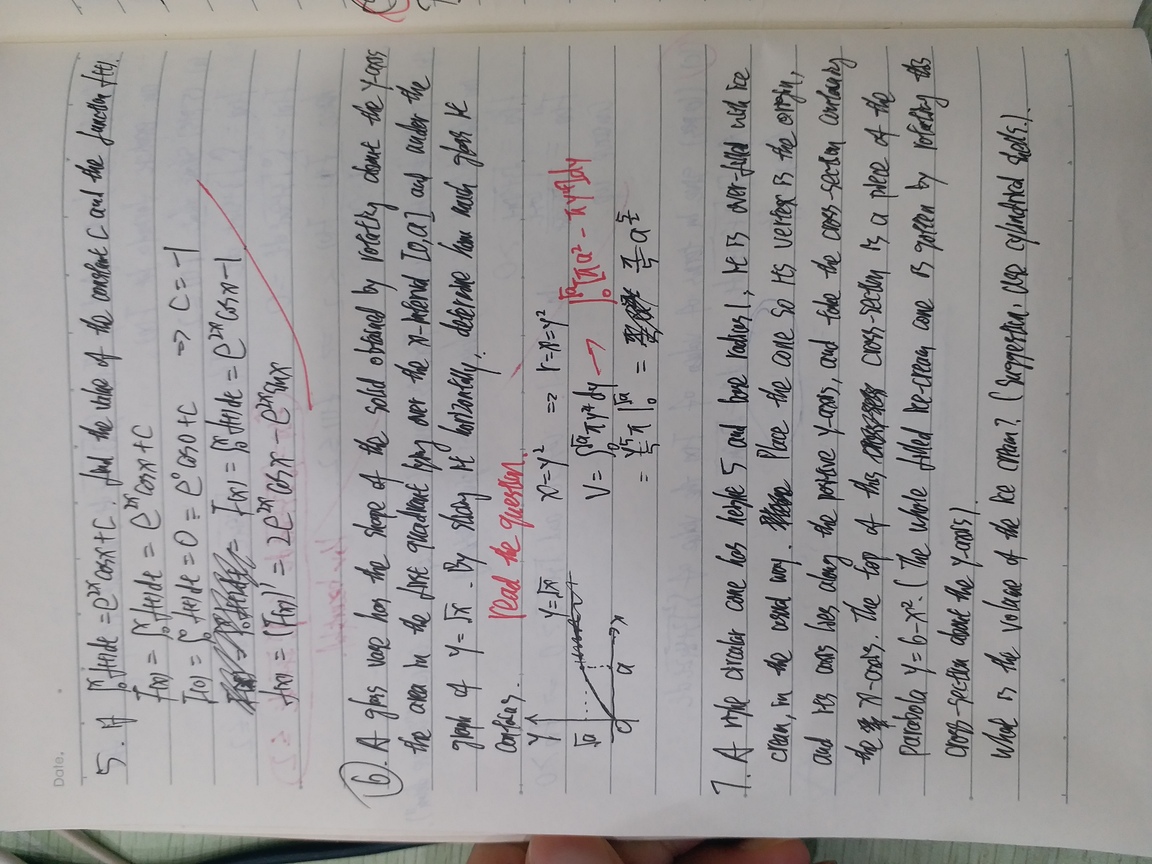 Date.
5. If ∫₀ˣ f(t)dt = e²ˣcosx + C. find the value of the constant C and the function f(t).
F(x) = ∫₀ˣ f(t)dt = e²ˣcosx + C
F(0) = ∫₀⁰ f(t)dt = 0 = e⁰cos0 + C ⇒ C = -1
F(x) = ∫₀ˣ f(t)dt = e²ˣcosx - 1
f(x) = (F(x))' = 2e²ˣcosx - e²ˣsinx
⑥. A glass vase has the shape of the solid obtained by rotating about the y-axis
the area in the first quadrant lying over the x-interval [0,a] and under the
graph of y = √x. By slicing it horizontally, determine how much glass it
contains. read the question.
y y=√x x=y² ⇒ r=x=y²
√a V = ∫₀^√a πy⁴dy → ∫₀^√a [πa² - πy⁴]dy
0 a x = y⁵/5 π |₀^√a = π/5 a^(5/2)
7. A right circular cone has height 5 and base radius 1, it is over-filled with ice
cream, in the usual way. Place the cone so its vertex is the origin,
and its axis lies along the positive y-axis, and take the cross-section containing
the x-axis. The top of this cross-section is a piece of the
parabola y = 6 - x². (The whole filled ice-cream cone is gotten by rotating this
cross-section about the y-axis).
What is the volume of the ice cream? (Suggestion, use cylindrical shells.).